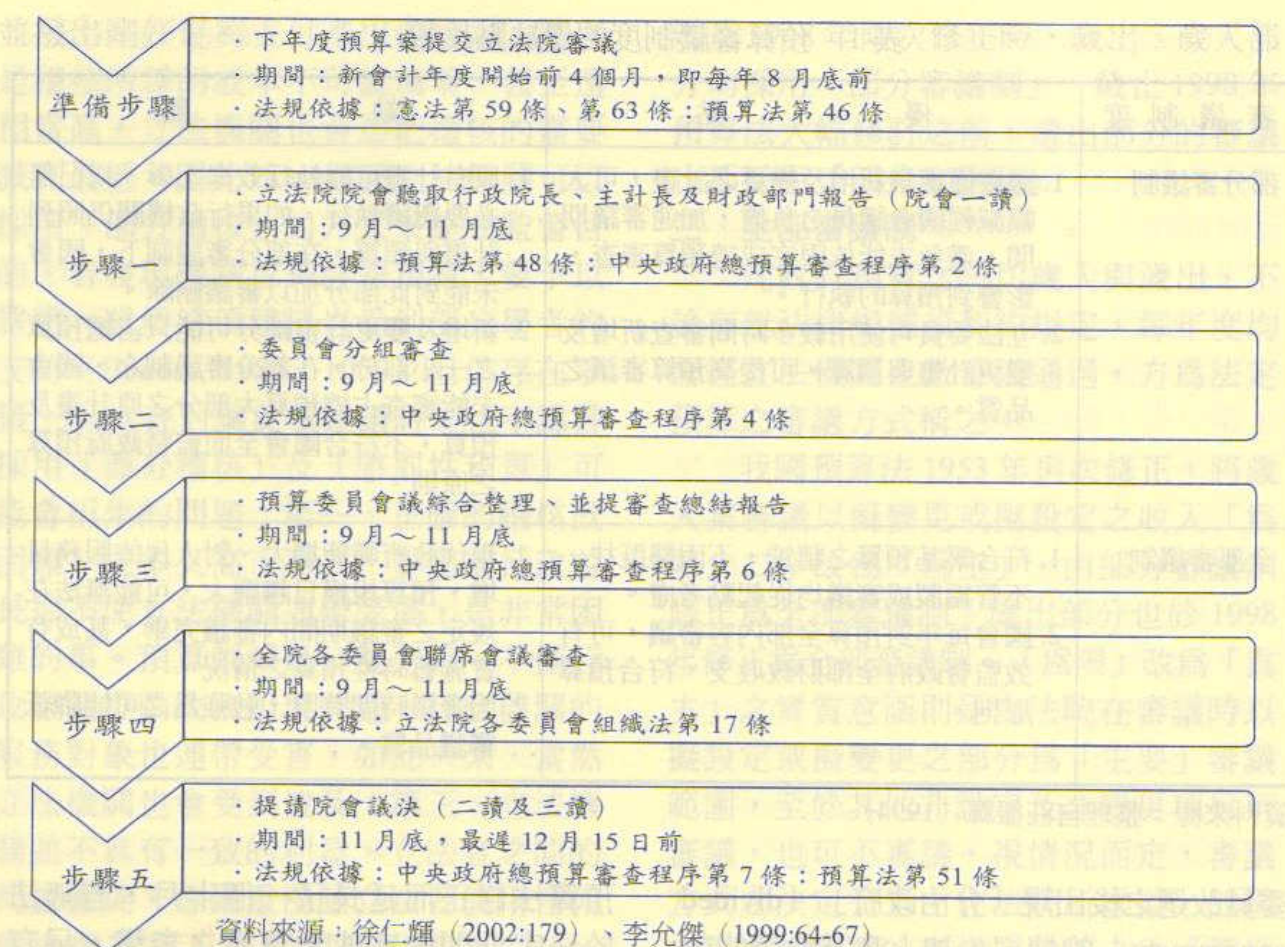 準備步驟
· 下年度預算案提交立法院審議
· 期間：新會計年度開始前 4 個月，即每年 8 月底前
· 法規依據：憲法第 59 條、第 63 條；預算法第 46 條
步驟一
· 立法院院會聽取行政院長、主計長及財政部門報告（院會一讀）
· 期間：9 月～ 11 月底
· 法規依據：預算法第 48 條；中央政府總預算審查程序第 2 條
步驟二
· 委員會分組審查
· 期間：9 月～ 11 月底
· 法規依據：中央政府總預算審查程序第 4 條
步驟三
· 預算委員會議綜合整理、並提審查總結報告
· 期間：9 月～ 11 月底
· 法規依據：中央政府總預算審查程序第 6 條
步驟四
· 全院各委員會聯席會議審查
· 期間：9 月～ 11 月底
· 法規依據：立法院各委員會組織法第 17 條
步驟五
· 提請院會議決（二讀及三讀）
· 期間：11 月底，最遲 12 月 15 日前
· 法規依據：中央政府總預算審查程序第 7 條；預算法第 51 條
資料來源：徐仁輝（2002:179）、李允傑（1999:64-67）